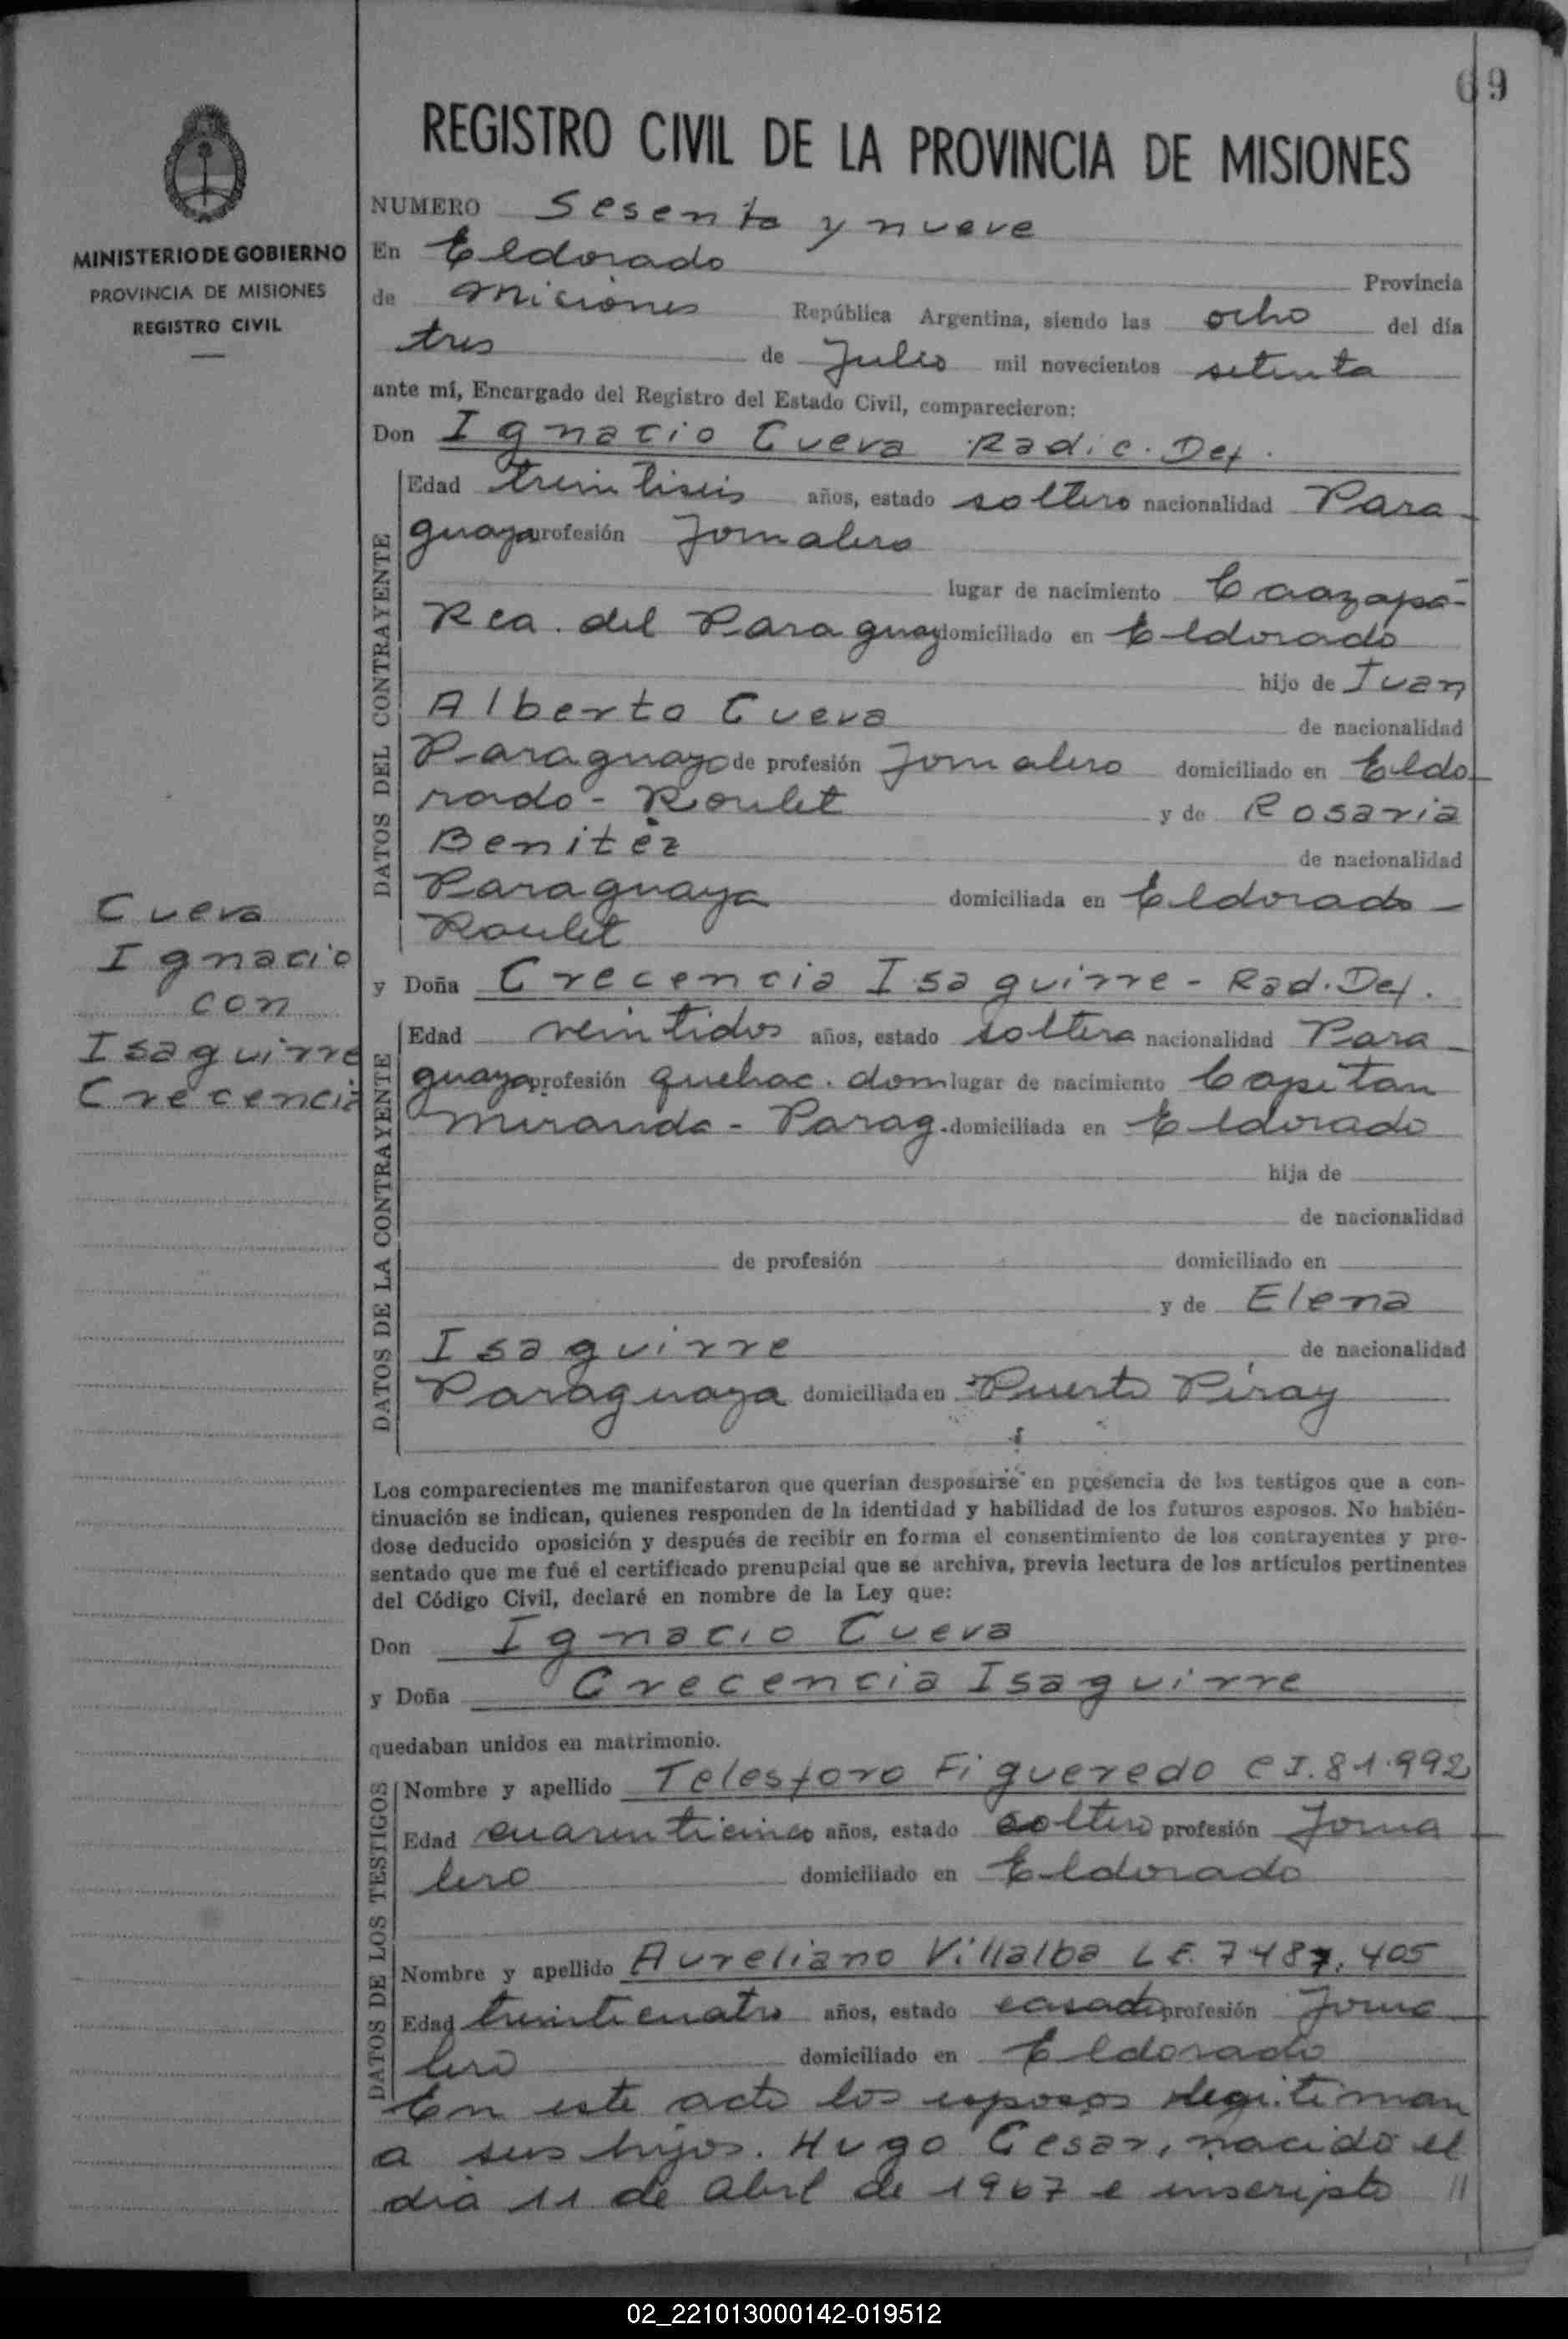 69
REGISTRO CIVIL DE LA PROVINCIA DE MISIONES
MINISTERIO DE GOBIERNO
PROVINCIA DE MISIONES
REGISTRO CIVIL
NUMERO Sesenta y nueve
En Eldorado Provincia
de Misiones República Argentina, siendo las ocho del día
tres de Julio mil novecientos setenta
ante mí, Encargado del Registro del Estado Civil, comparecieron:
Don Ignacio Cueva Radic. Def.
DATOS DEL CONTRAYENTE
Edad treintiseis años, estado soltero nacionalidad Para-
guaya profesión Jornalero
lugar de nacimiento Caazapá-
Rca. del Paraguay domiciliado en Eldorado
hijo de Juan
Alberto Cueva de nacionalidad
Paraguayo de profesión Jornalero domiciliado en Eldo-
rado - Roulet y de Rosaria
Benitez de nacionalidad
Paraguaya domiciliada en Eldorado -
Roulet
Cueva
Ignacio
con
Isaguirre
Crecencia
y Doña Crecencia Isaguirre - Rad. Def.
DATOS DE LA CONTRAYENTE
Edad veintidos años, estado soltera nacionalidad Para-
guaya profesión quehac. dom lugar de nacimiento Capitan
Miranda - Parag. domiciliada en Eldorado
hija de
de nacionalidad
de profesión domiciliado en
y de Elena
Isaguirre de nacionalidad
Paraguaya domiciliada en Puerto Piray
Los comparecientes me manifestaron que querían desposarse en presencia de los testigos que a con-
tinuación se indican, quienes responden de la identidad y habilidad de los futuros esposos. No habién-
dose deducido oposición y después de recibir en forma el consentimiento de los contrayentes y pre-
sentado que me fué el certificado prenupcial que se archiva, previa lectura de los artículos pertinentes
del Código Civil, declaré en nombre de la Ley que:
Don Ignacio Cueva
y Doña Crecencia Isaguirre
quedaban unidos en matrimonio.
DATOS DE LOS TESTIGOS
Nombre y apellido Telesforo Figueredo C I. 81.992
Edad cuarenticinco años, estado soltero profesión Jorna-
lero domiciliado en Eldorado
Nombre y apellido Aureliano Villalba L E. 7487.405
Edad treinticuatro años, estado casado profesión Jorna-
lero domiciliado en Eldorado
En este acto los esposos legitiman
a sus hijos. Hugo Cesar, nacido el
dia 11 de abril de 1967 e inscripto //
02_221013000142-019512